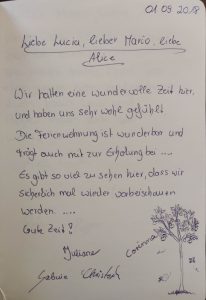 01.09.2018
Liebe Lucia, lieber Mario, liebe
Alice
Wir hatten eine wundervolle Zeit hier,
und haben uns sehr wohl gefühlt.
Die Ferienwohnung ist wunderbar und
trägt auch mit zur Erholung bei ....
Es gibt so viel zu sehen hier, dass wir
sicherlich mal wieder vorbeischauen
werden ....
Gute Zeit!
Juliane
Corinna
Sabine Christoph